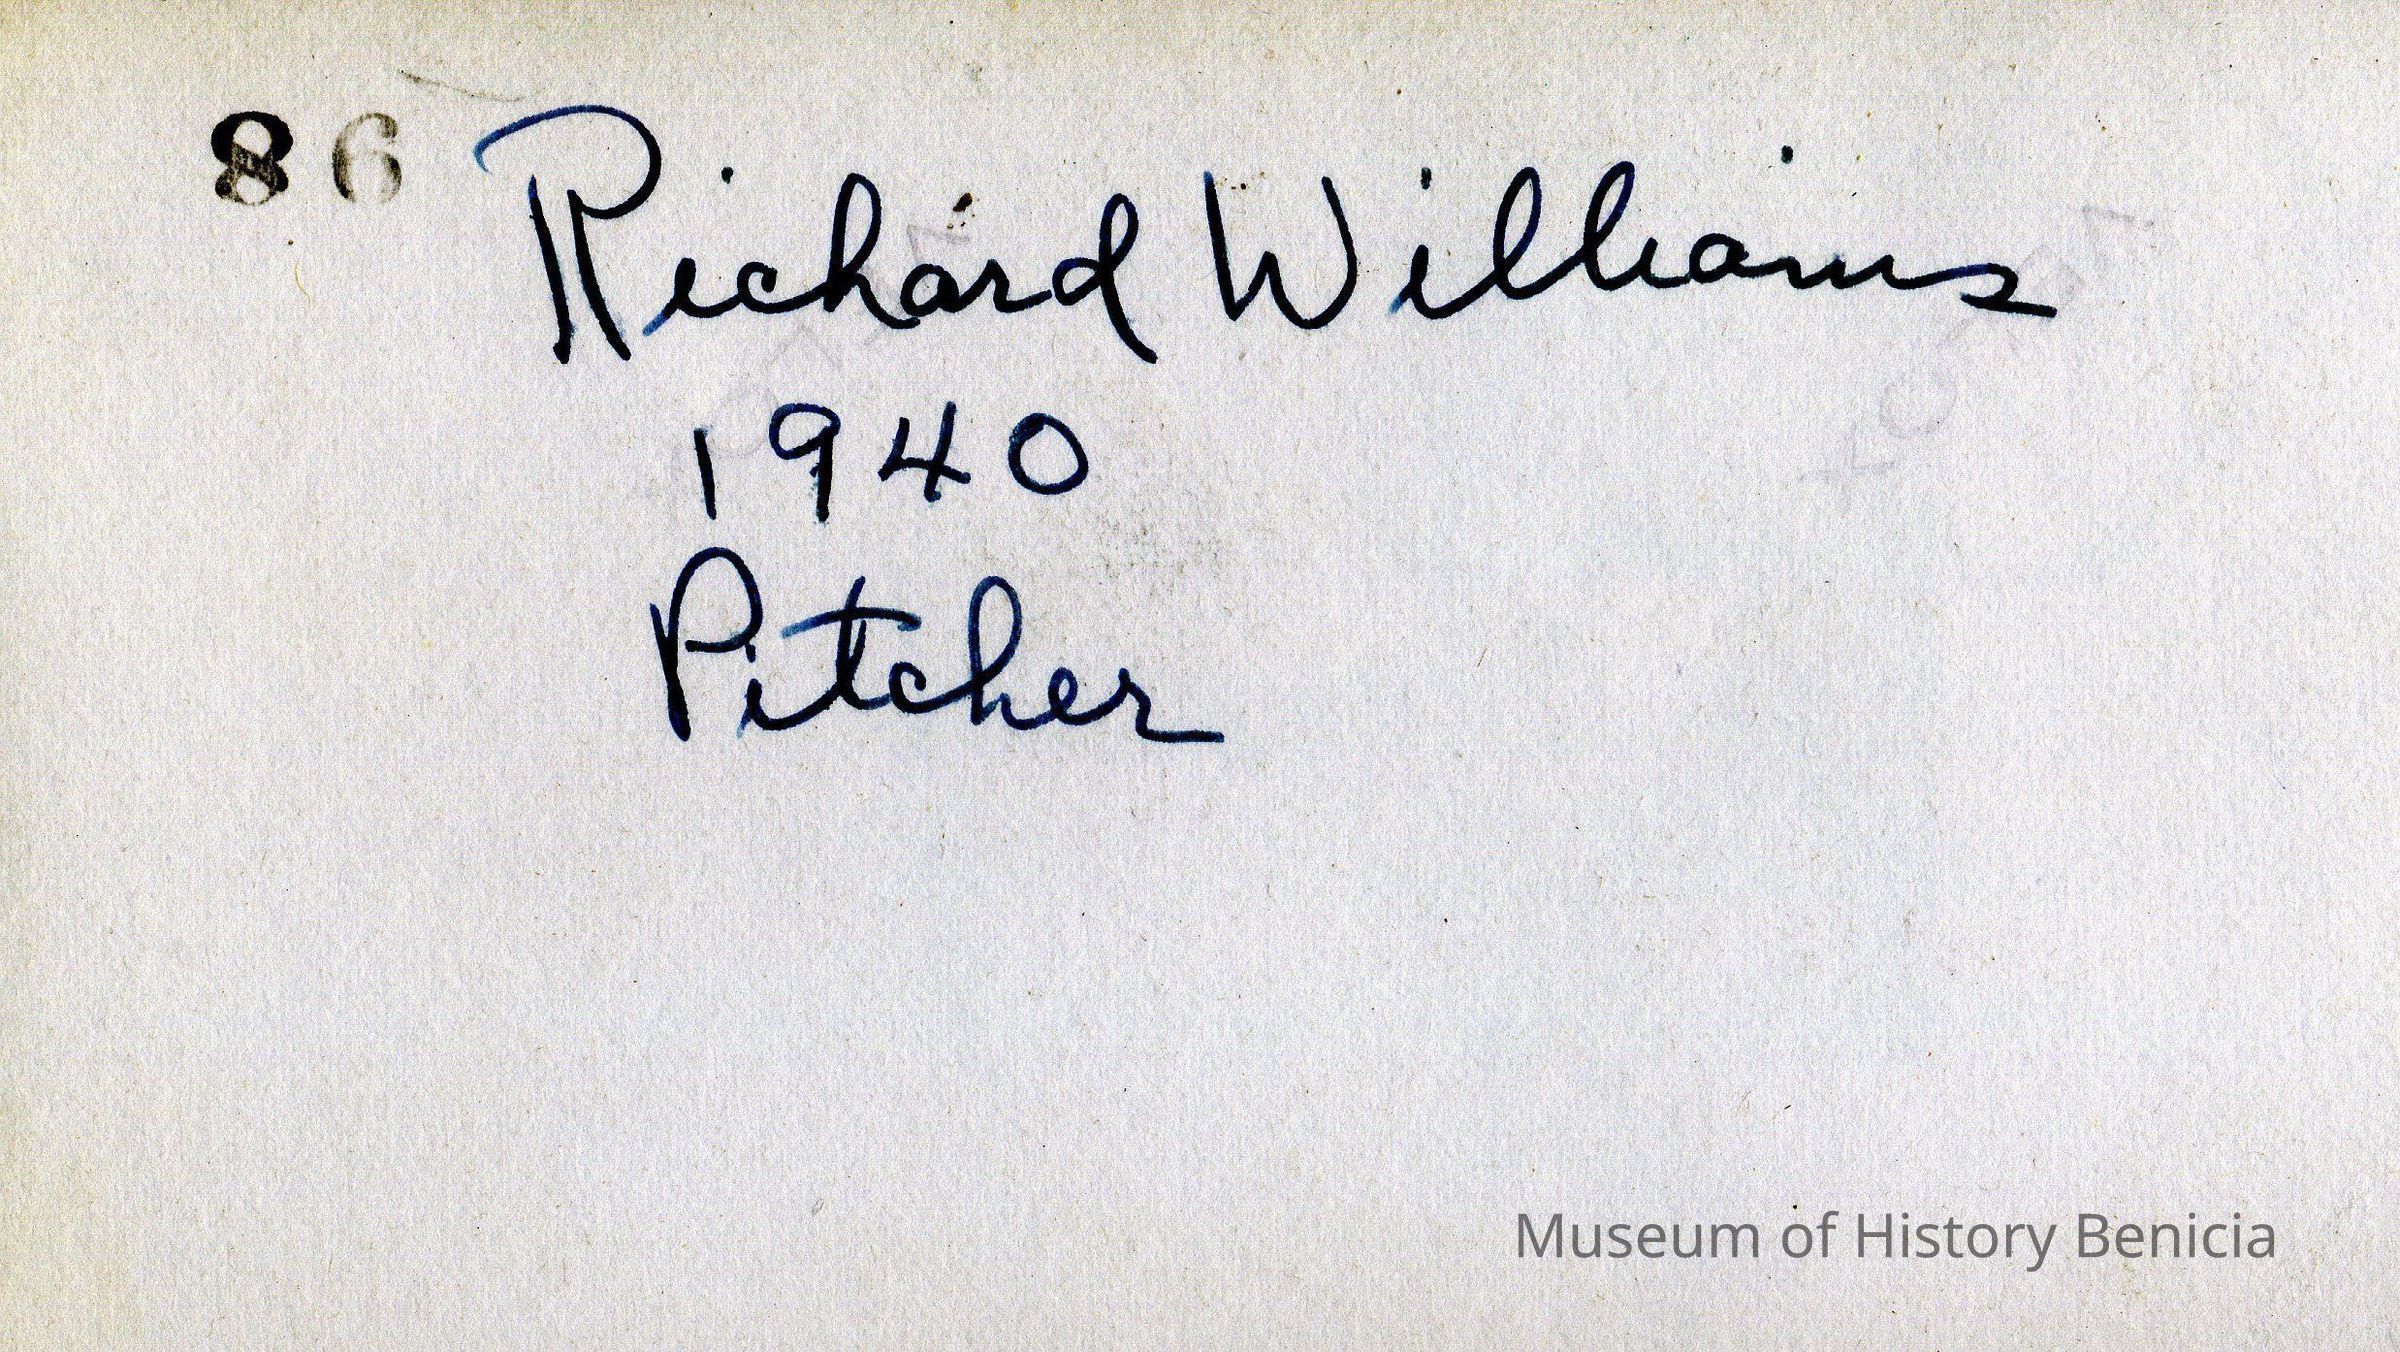 86 Richard Williams
1940
Pitcher
Museum of History Benicia